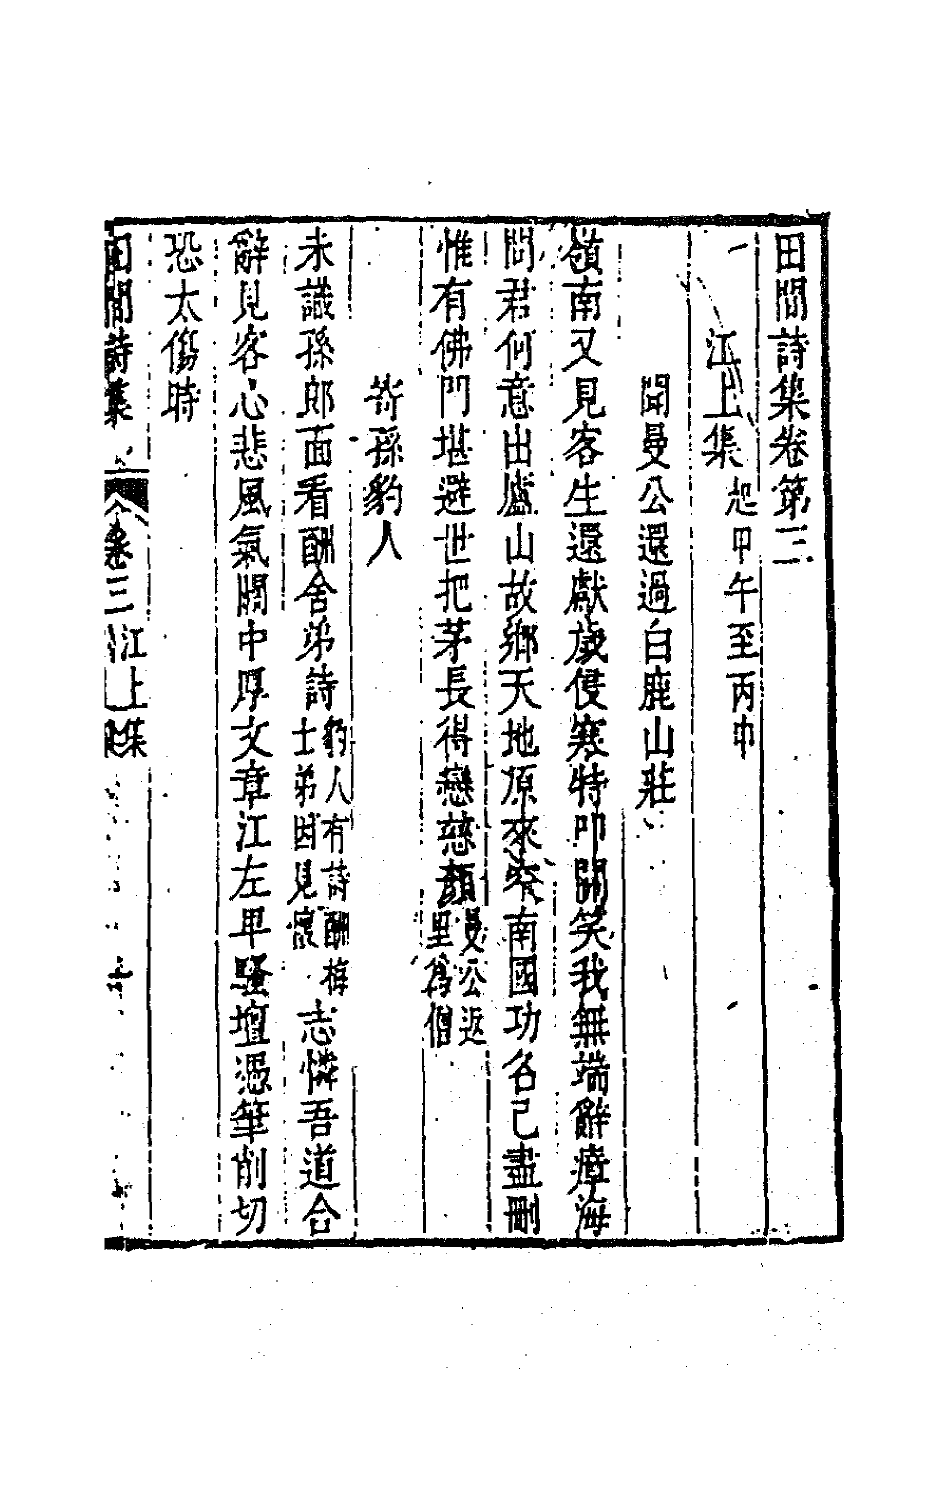 田間詩集卷第三
江上集起甲午至丙申
聞曼公還過白鹿山莊
嶺南又見客生還獻歲侵寒特叩關笑我無端辭瘴海
問君何意出廬山故鄉天地原來窄南國功名已盡刪
惟有佛門堪避世把茅長得戀慈顏曼公返里爲僧
寄孫豹人
未識孫郎面看酬舍弟詩豹人有詩酬梅士弟因見懷志憐吾道合
辭見客心悲風氣關中厚文章江左卑騷壇憑筆削切
恐太傷時
田間詩集 卷三 江上集